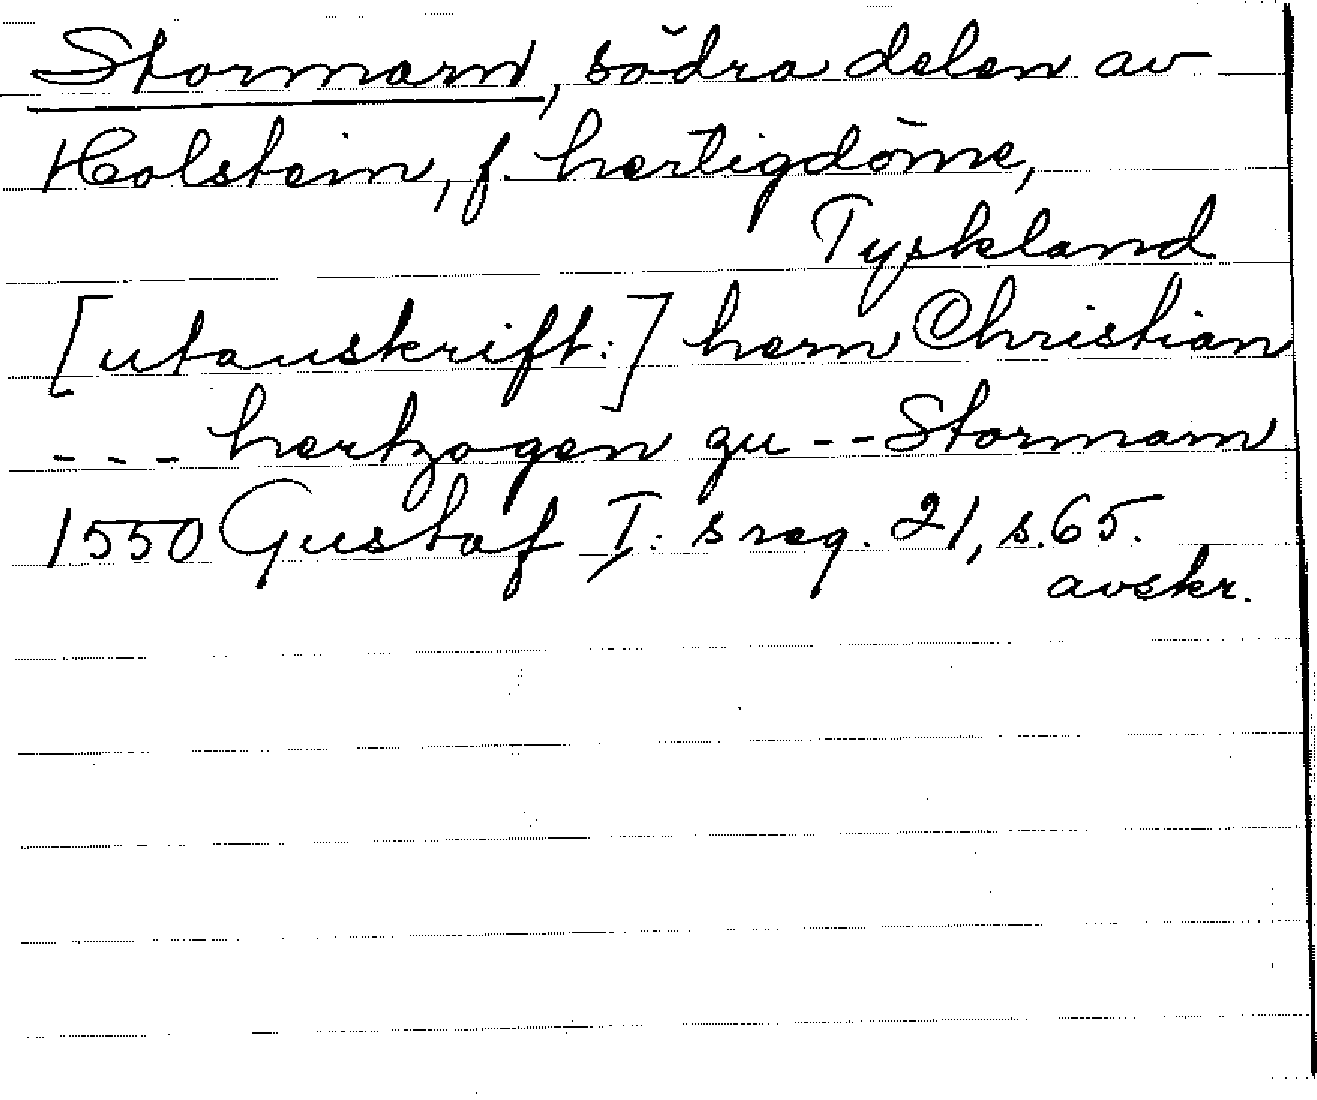 Stormarn, södra delen av
Holstein, f. hertigdöme,
Tyskland
[utanskrift:] hern Christian
--- hertzogen zu -- Stormarn
1550 Gustaf I:s reg. 21, s. 65.
avskr.